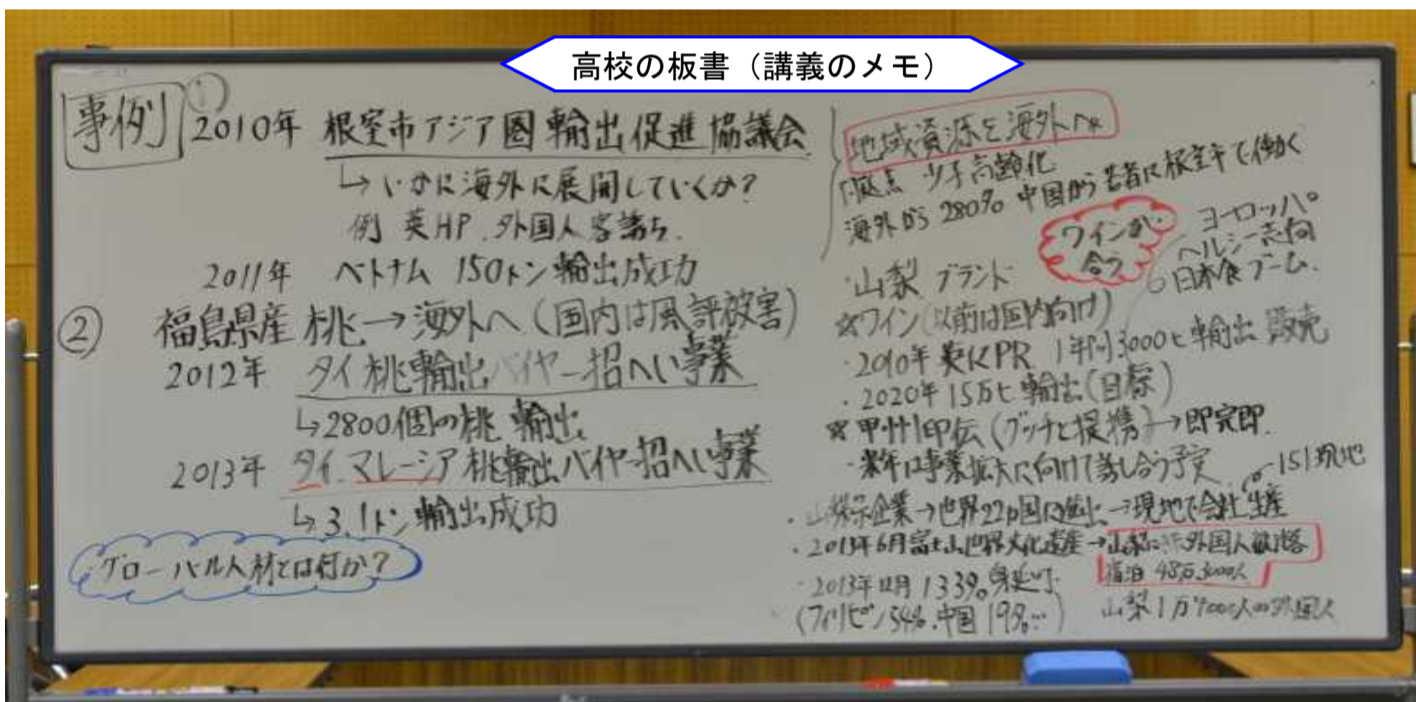 高校の板書（講義のメモ）
事例 ① 2010年 根室市アジア圏輸出促進協議会
↳いかに海外に展開していくか？
例 英HP、外国人客誘致、
2011年 ベトナム 150トン輸出成功
② 福島県産 桃→海外へ（国内は風評被害）
2012年 タイ桃輸出バイヤー招へい事業
↳2800個の桃 輸出
2013年 タイ、マレーシア桃輸出バイヤー招へい事業
↳3.1トン輸出成功
・グローバル人材とは何か？
地域資源を海外へ
少子高齢化
海外から 280% 中国から若者に根室市で働く
ワインが合う
ヨーロッパ
ヘルシー志向
日本食ブーム、
・山梨ブランド
☆ワイン（以前は国内向け）
・2010年 英にPR 1年間3000ℓ輸出 販売
・2020年 15万ℓ輸出（目標）
☆甲州印伝（グッチと提携）→即完即、
・来年は事業拡大に向けて話し合う予定
151現地
企業→世界22か国に進出→現地で会社生産
・2013年6月富士山世界文化遺産→山梨に 外国人観光客
宿泊 48万3000人
・2013年12月 1339 身延町、
（フィリピン54%、中国19%…）
山梨1万 人の外国人